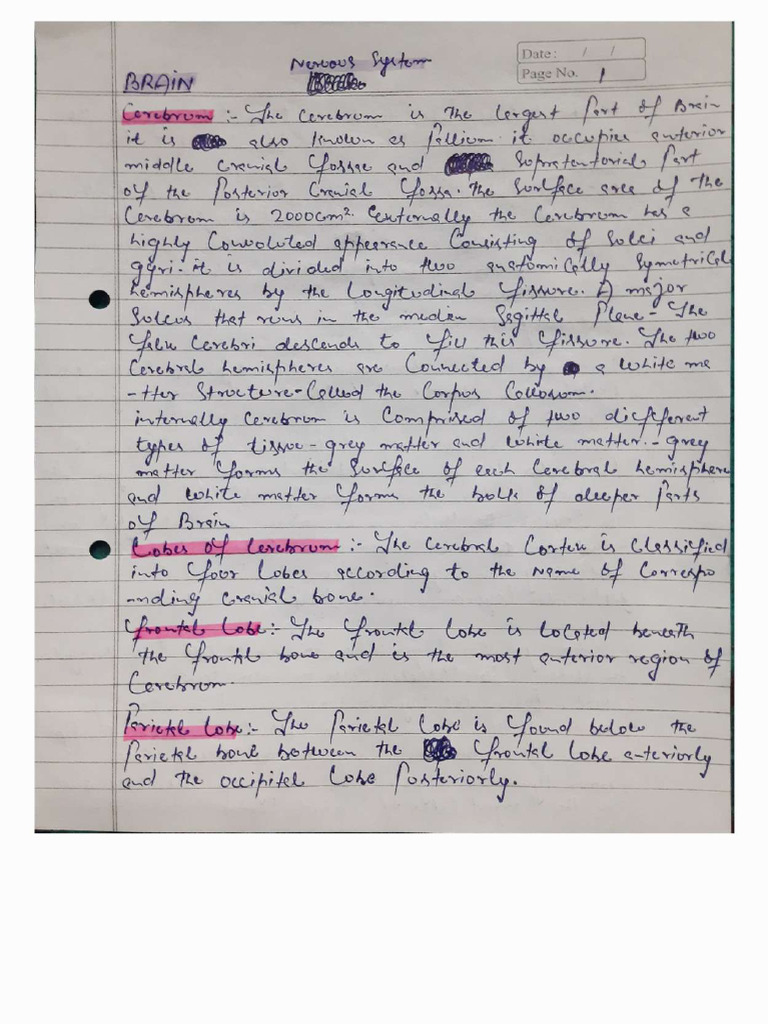 Nervous System
Date: / /
Page No. 1
BRAIN
Cerebrum :- The cerebrum is the largest Part of Brain
it is also known as Pallium it occupies anterior
middle cranial fossae and Supratentorial Part
of the Posterior Cranial fossa. the Surface area of the
Cerebrum is 2000cm². Externally the Cerebrum has a
highly Convoluted appearance Consisting of Sulci and
gyri. it is divided into two anatomically Symetrical
hemispheres by the Longitudinal fissure. A major
Sulcus that runs in the median Sagittal Plane - The
falx Cerebri descends to fill this fissure. The two
Cerebral hemispheres are Connected by a white ma
-tter Structure - Called the Corpus Callosum.
internally Cerebrum is Comprised of two different
types of tissue - grey matter and white matter. - grey
matter forms the Surface of each Cerebral hemisphere
and white matter forms the bulk of deeper Parts
of Brain
Lobes of Cerebrum :- The Cerebral Cortex is Classified
into four Lobes according to the Name of Correspo
-nding cranial bone.
frontal Lobe :- The frontal Lobe is Located beneath
the frontal bone and is the most anterior region of
Cerebrum.
Parietal Lobe :- The Parietal Lobe is found below the
Parietal bone between the frontal Lobe anteriorly
and the occipital Lobe Posteriorly.